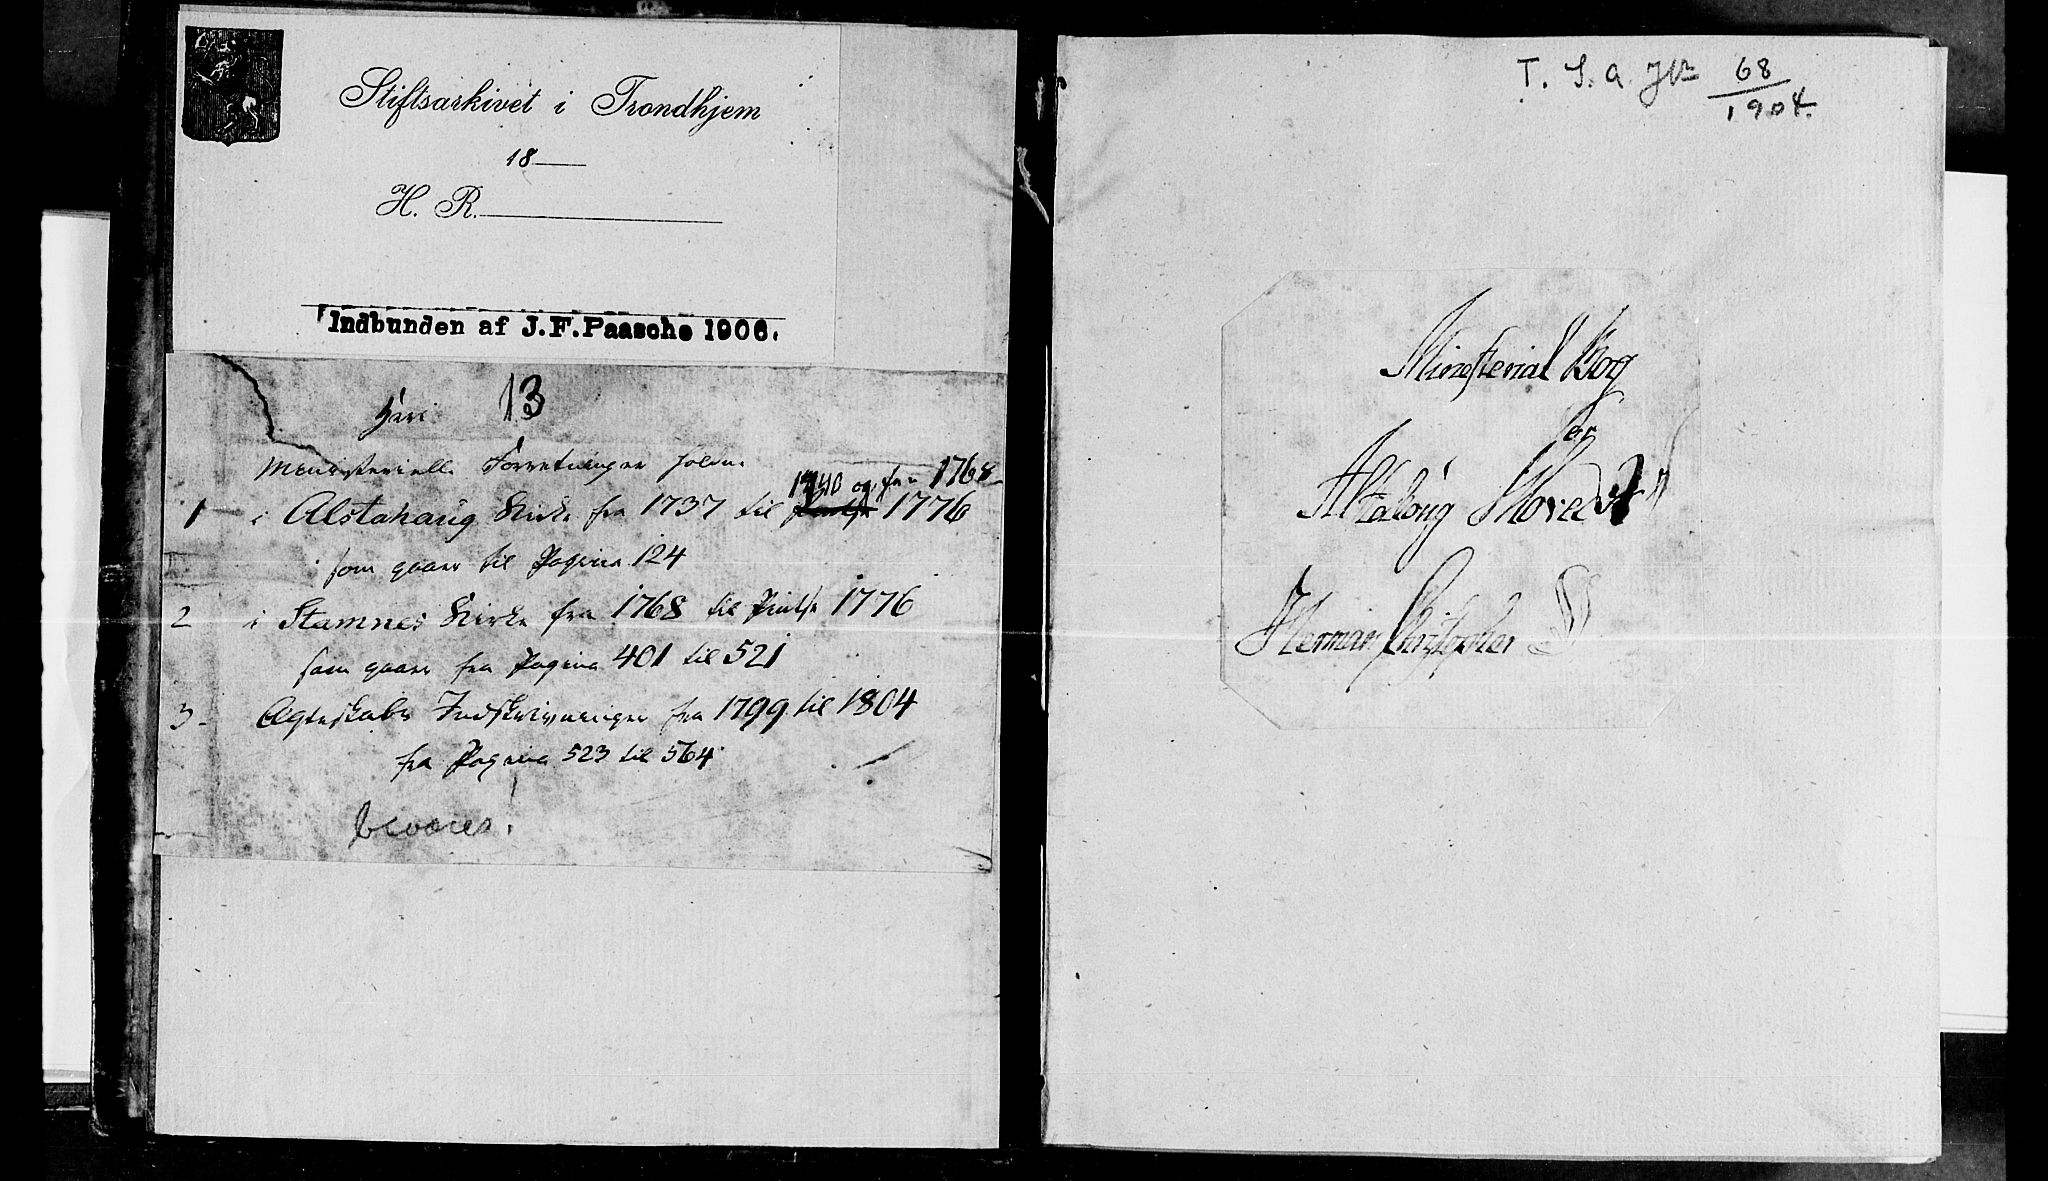 Stiftsarkivet i Trondhjem
18
H. R.
Indbunden af J.F.Paasche 1906.
13
Ministerielle Forretninger
1 i Alstahaug Kirke fra 1737 til 1740 og fra 1768 1776
som gaaer til Pagina 124
2 i Stamnes Kirke fra 1768 til 1776
som gaaer fra Pagina 401 til 521
3 Ægteskabs Indskrivninger fra 1799 til 1804
fra Pagina 523 til 564
bevares!
T. S. a. Jnr 68/1904.
Ministerial Bog
for
Herman Christopher